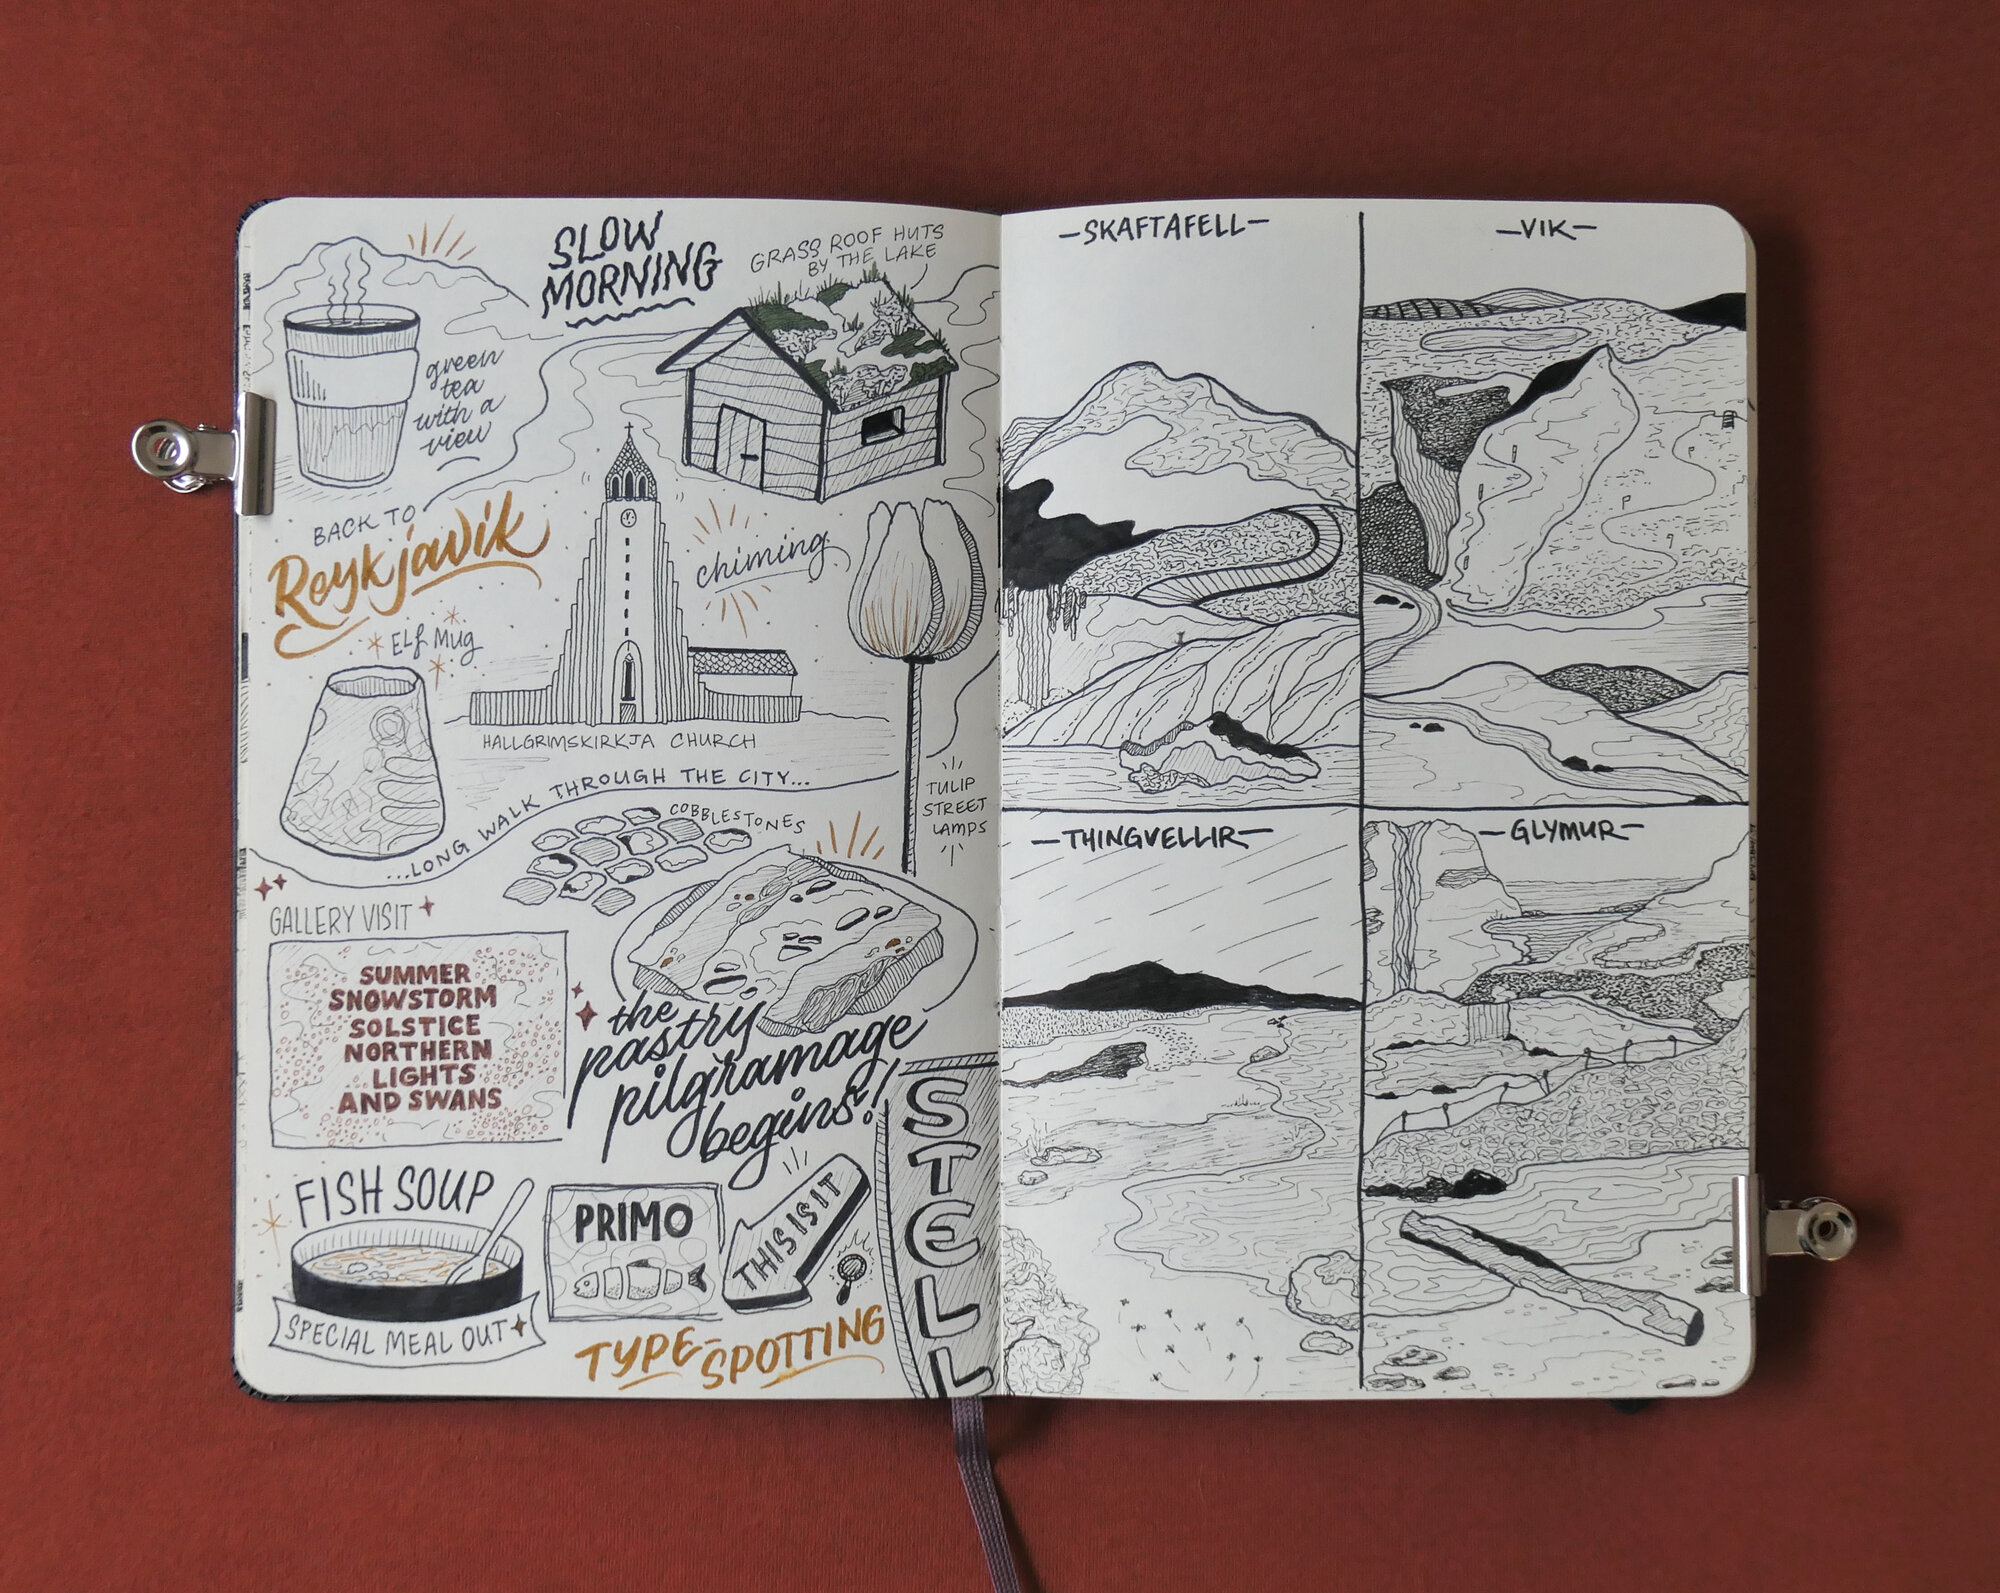 SLOW
MORNING
GRASS ROOF HUTS
BY THE LAKE
green
tea
with a
view
BACK TO
Reykjavik
chiming
ELf Mug
HALLGRIMSKIRKJA CHURCH
...LONG WALK THROUGH THE CITY...
TULIP
STREET
LAMPS
COBBLESTONES
GALLERY VISIT
SUMMER
SNOWSTORM
SOLSTICE
NORTHERN
LIGHTS
AND SWANS
the
pastry
pilgramage
begins!
FISH SOUP
SPECIAL MEAL OUT
PRIMO
THIS IS IT
TYPE-
SPOTTING
STELL
-SKAFTAFELL-
-VIK-
-THINGVELLIR-
-GLYMUR-